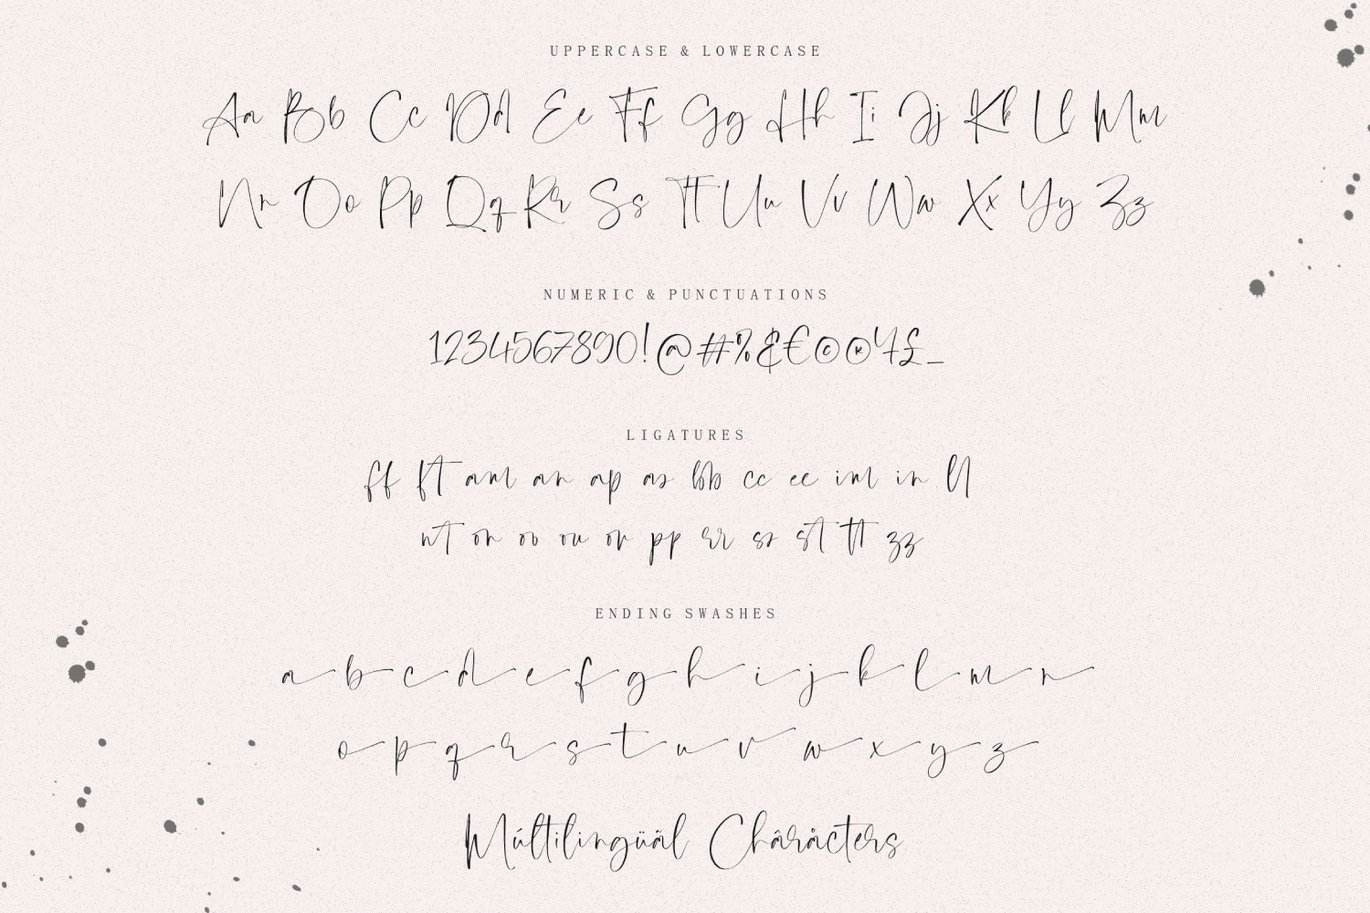 UPPERCASE & LOWERCASE
Aa Bb Cc Dd Ee Ff Gg Hh Ii Jj Kk Ll Mm
Nn Oo Pp Qq Rr Ss Tt Uu Vv Ww Xx Yy Zz
NUMERIC & PUNCTUATIONS
1234567890!@#%&€©®¥£_
LIGATURES
ff ft am an ap as bb cc ee im in ll
nt on oo ou or pp rr ss st tt zz
ENDING SWASHES
a b c d e f g h i j k l m n
o p q r s t u v w x y z
Múltilingüãl Chârâcters